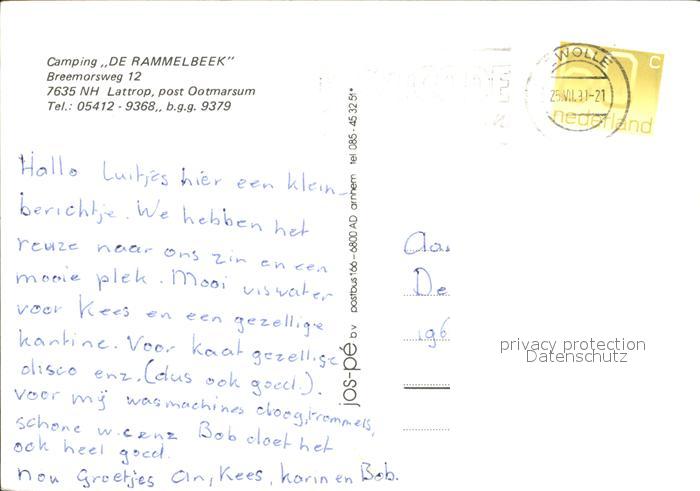 Camping „DE RAMMELBEEK”
Breemorsweg 12
7635 NH Lattrop, post Ootmarsum
Tel.: 05412 - 9368,, b.g.g. 9379
ZWOLLE
25.VII.81-21
C
nederland
Hallo Luitjes hier een klein
berichtje. We hebben het
reuze naar ons zin en een
mooie plek. Mooi viswater
voor Kees en een gezellige
kantine. Voor kaat gezellige
disco enz. (dus ook goed.).
voor mij wasmachines droogtrommels,
schone w.c enz Bob doet het
ook heel goed.
Nou Groetjes An, Kees, karin en Bob.
jos-pé b.v. postbus 166 – 6800 AD arnhem tel. 085 - 45 32 51*
Aa
De
196
privacy protection
Datenschutz